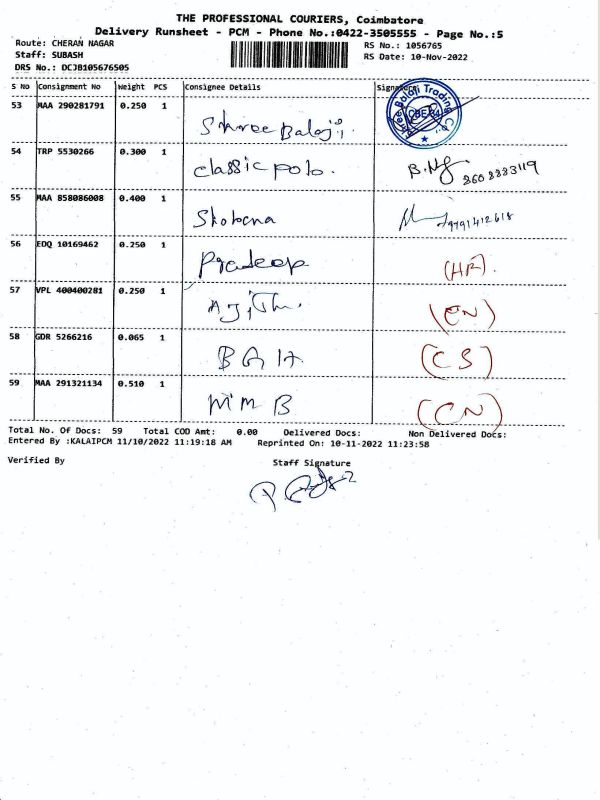 THE PROFESSIONAL COURIERS, Coimbatore
Delivery Runsheet - PCM - Phone No.:0422-3505555 - Page No.:5
Route: CHERAN NAGAR RS No.: 1056765
Staff: SUBASH RS Date: 10-Nov-2022
DRS No.: DCJB105676505
S No Consignment No Weight PCS Consignee Details Signature
53 MAA 290281791 0.250 1 Shree Balaji. Shree Balaji Trading Co. CBE-34
54 TRP 5530266 0.300 1 classic polo. 8608883119
55 MAA 858086008 0.400 1 Shobana 9791412618
56 EDQ 10169462 0.250 1 Pradeep (HR).
57 VPL 400400281 0.250 1 Ajith. (CN)
58 GDR 5266216 0.065 1 (CS)
59 MAA 291321134 0.510 1 MMB (CN)
Total No. Of Docs: 59 Total COD Amt: 0.00 Delivered Docs: Non Delivered Docs:
Entered By :KALAIPCM 11/10/2022 11:19:18 AM Reprinted On: 10-11-2022 11:23:58
Verified By Staff Signature